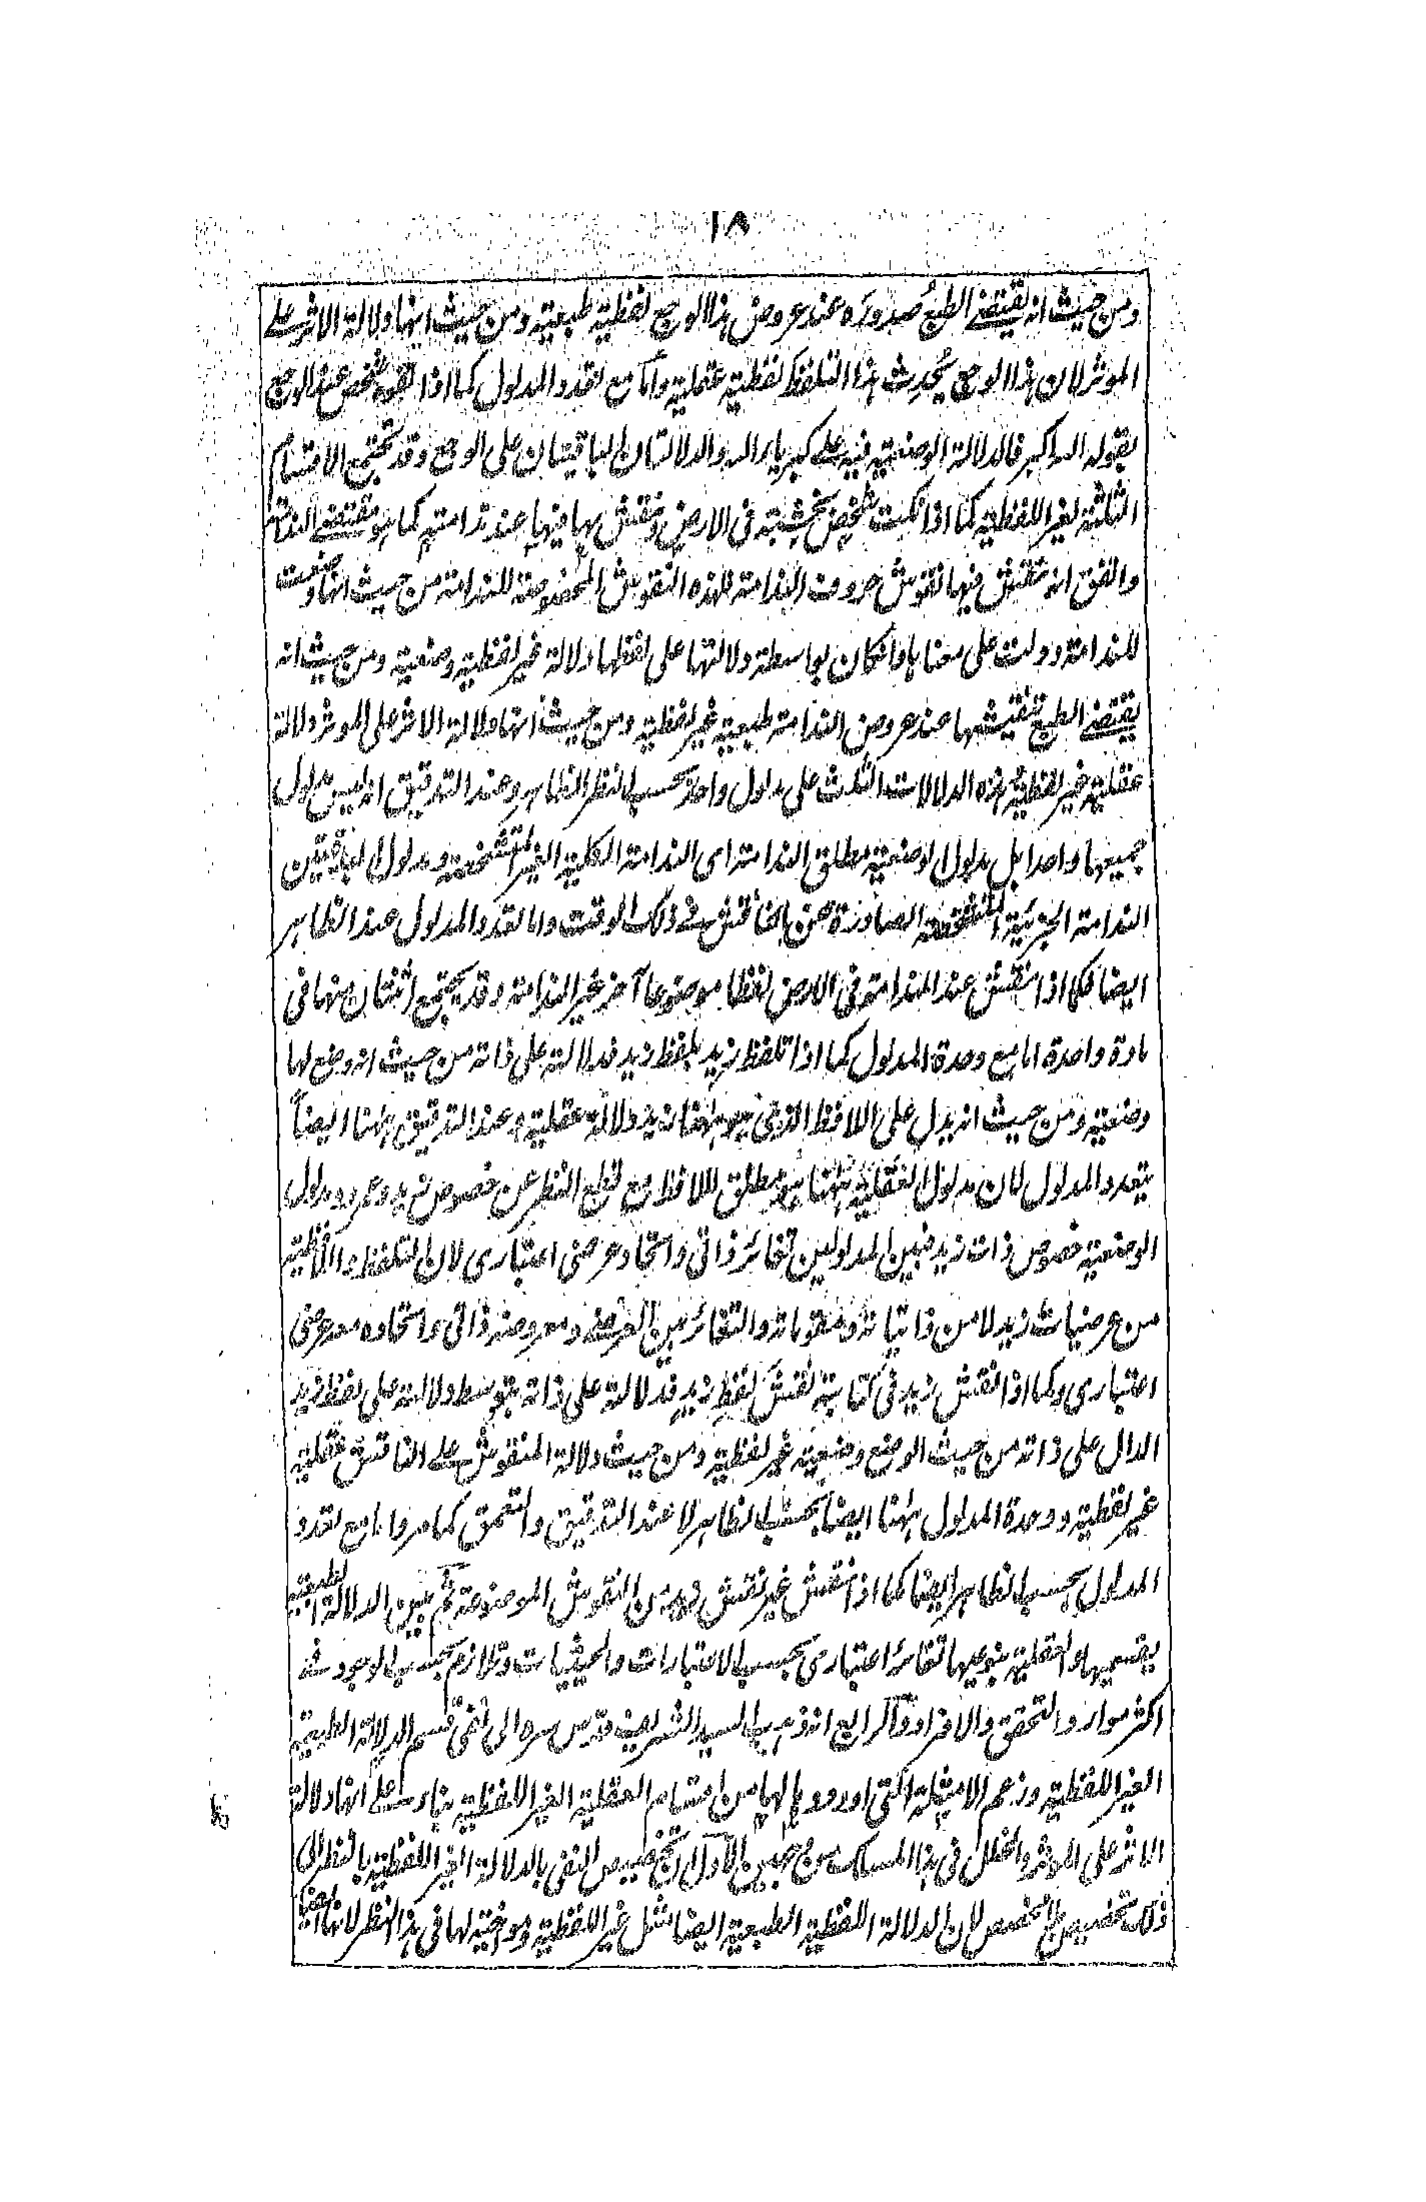 ١٨
ومن حيث انه يقتضى الطبع صدوره عند عروض هذا الوجع لفظية طبعية ومن حيث انها دلالة الاثر على
الموثر لان هذا الوجع يحدث هذا التلفظ لفظية عقلية وأما مع تعدد المدلول كما اذا تفوه شخص عند الوجع
بقوله الله اكبر فالدلالة الوضعية فيه على كبرياء الله والدلالتان الباقيتان على الوجع وقد تجتمع الاقسام
الثلثة لغير اللفظية كما اذا نكت شخص بخشبته فى الارض ونقش بها فيها عند ندامته كما هو مقتضى الندامة
واتفق انه نقش فيها نقوش حروف الندامة فهذه النقوش المخصوصة للندامة من حيث انها وضعت
للندامة ودلت على معناها وان كان بواسطة دلالتها على لفظها دلالة غير لفظية وضعية ومن حيث انه
يقتضى الطبع تنقيشها عند عروض الندامة طبعية غير لفظية ومن حيث انها دلالة الاثر على الموثر دلالة
عقلية غير لفظية فهذه الدلالات الثلث على مدلول واحد بحسب النظر الظاهر وعند التدقيق انه ليس مدلول
جميعها واحدا بل مدلول الوضعية مطلق الندامة اى الندامة الكلية الغير المتشخصة ومدلول الباقيتين
الندامة الجزئية المتشخصة الصادرة عن الناقش فى ذلك الوقت واما تعدد المدلول عند الظاهر
ايضا فكما اذا نقش عند الندامة فى الارض لفظا موضوعا آخر غير الندامة وقد يجتمع اثنتان منها فى
مادة واحدة اما مع وحدة المدلول كما اذا تلفظ زيد بلفظ زيد فدلالته على ذاته من حيث انه وضع لها
وضعية ومن حيث انه يدل على اللافظ الذى هو ههنا زيد دلالة عقلية وعند التدقيق ههنا ايضاً
يتعدد المدلول لان مدلول العقلية ههنا هو مطلق اللافظ مع قطع النظر عن خصوص زيد وعمرو ومدلول
الوضعية خصوص ذات زيد فبين المدلولين تغائر ذاتى واتحاد عرضى اعتبارى لان التلفظ واللافظية
من عرضيات زيد لا من ذاتياته ومقوماته والتغائر بين العرضى ومعروضه ذاتى واتحاده معه عرضى
اعتبارى وكما اذا نقش زيد فى كتابته نقش لفظ زيد فدلالته على ذاته بتوسط دلالته على لفظ زيد
الدال على ذاته من حيث الوضع وضعية غير لفظية ومن حيث دلالة المنقوش على الناقش عقلية
غير لفظية ووحدة المدلول ههنا ايضاً بحسب الظاهر لا عند التدقيق والتعمق كما مر واما مع تعدد
المدلول بحسب الظاهر ايضا كما اذا نقش غير نقش من النقوش الموضوعة ثم بين الدلالة الطبعية
بقسميها والعقلية بنوعيها تغائر اعتبارى بحسب الاعتبارات والحيثيات وتلازم بحسب الوجود فى
اكثر موارد التحقق والافراد والرابع انه ذهب السيد الشريف قدس سره الى نفى قسم الدلالة الطبعية
الغير اللفظية وزعم الامثلة التى اوردوها لها من اقسام العقلية الغير اللفظية بناء على انها دلالة
الاثر على الموثر والخلل فى هذا المسلك من وجهين الاول ان تخصيص النفى بالدلالة الغير اللفظية بالنظر الى
ذلك تخصيص بلا مخصص لان الدلالة اللفظية الطبعية ايضا مثل غير اللفظية ومواخية لها فى هذا النظر لانها ايضا